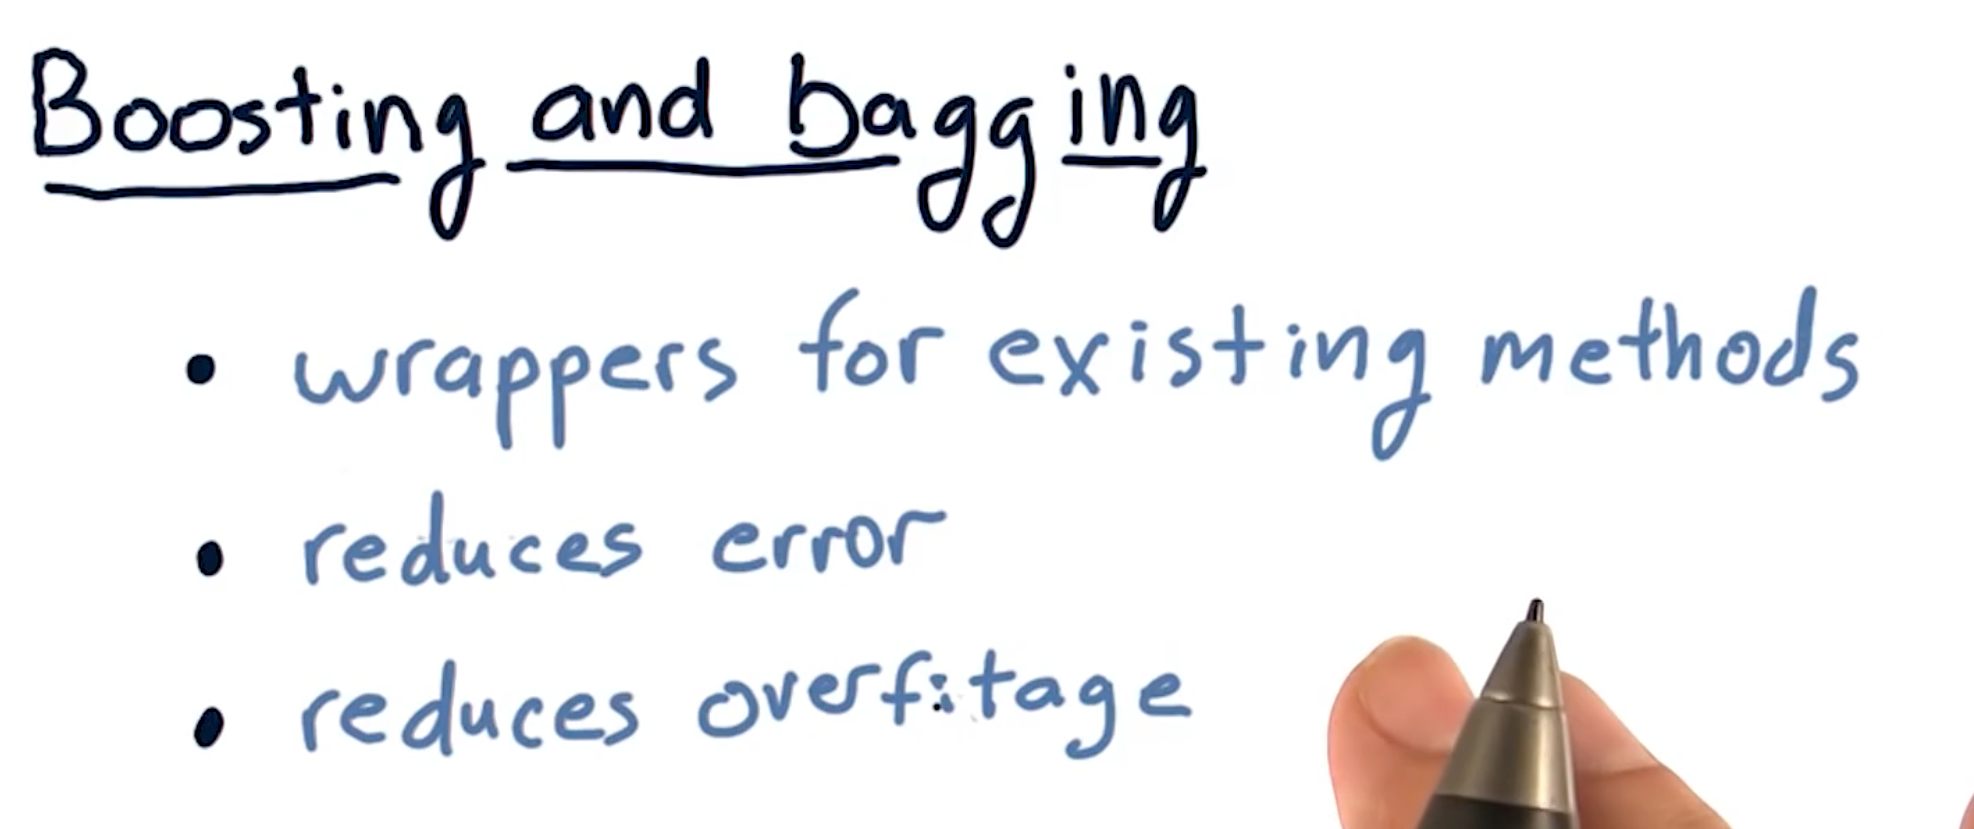 Boosting and bagging
• wrappers for existing methods
• reduces error
• reduces overfitage